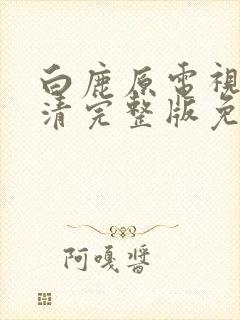 白鹿原電視
清完整版免
阿嘎醬